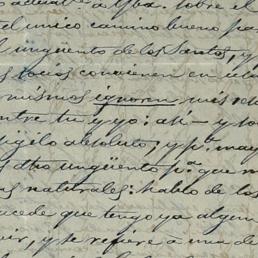 sobre el
el unico camino bueno pa
l ungüento de los Santos, y
s tocios convienen en
mismos ignoren mis
ntre tu y yo: ahi — y to
igilo absoluto; y pr. may
dho ungüento pa. que
as naturales: hablo de los
ucede que tengo ya algun
uir, y se refiere a una de